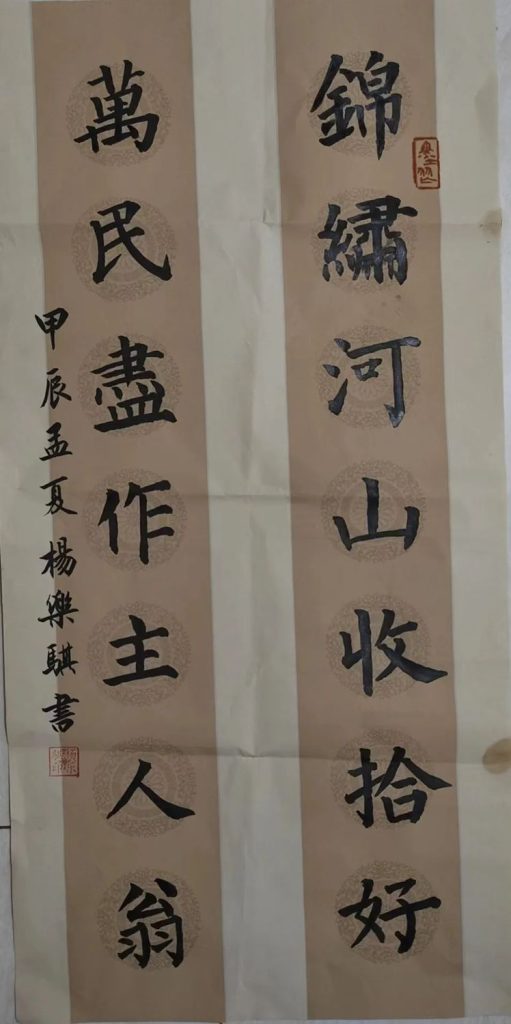 錦繡河山收拾好
萬民盡作主人翁
甲辰孟夏楊樂騏書